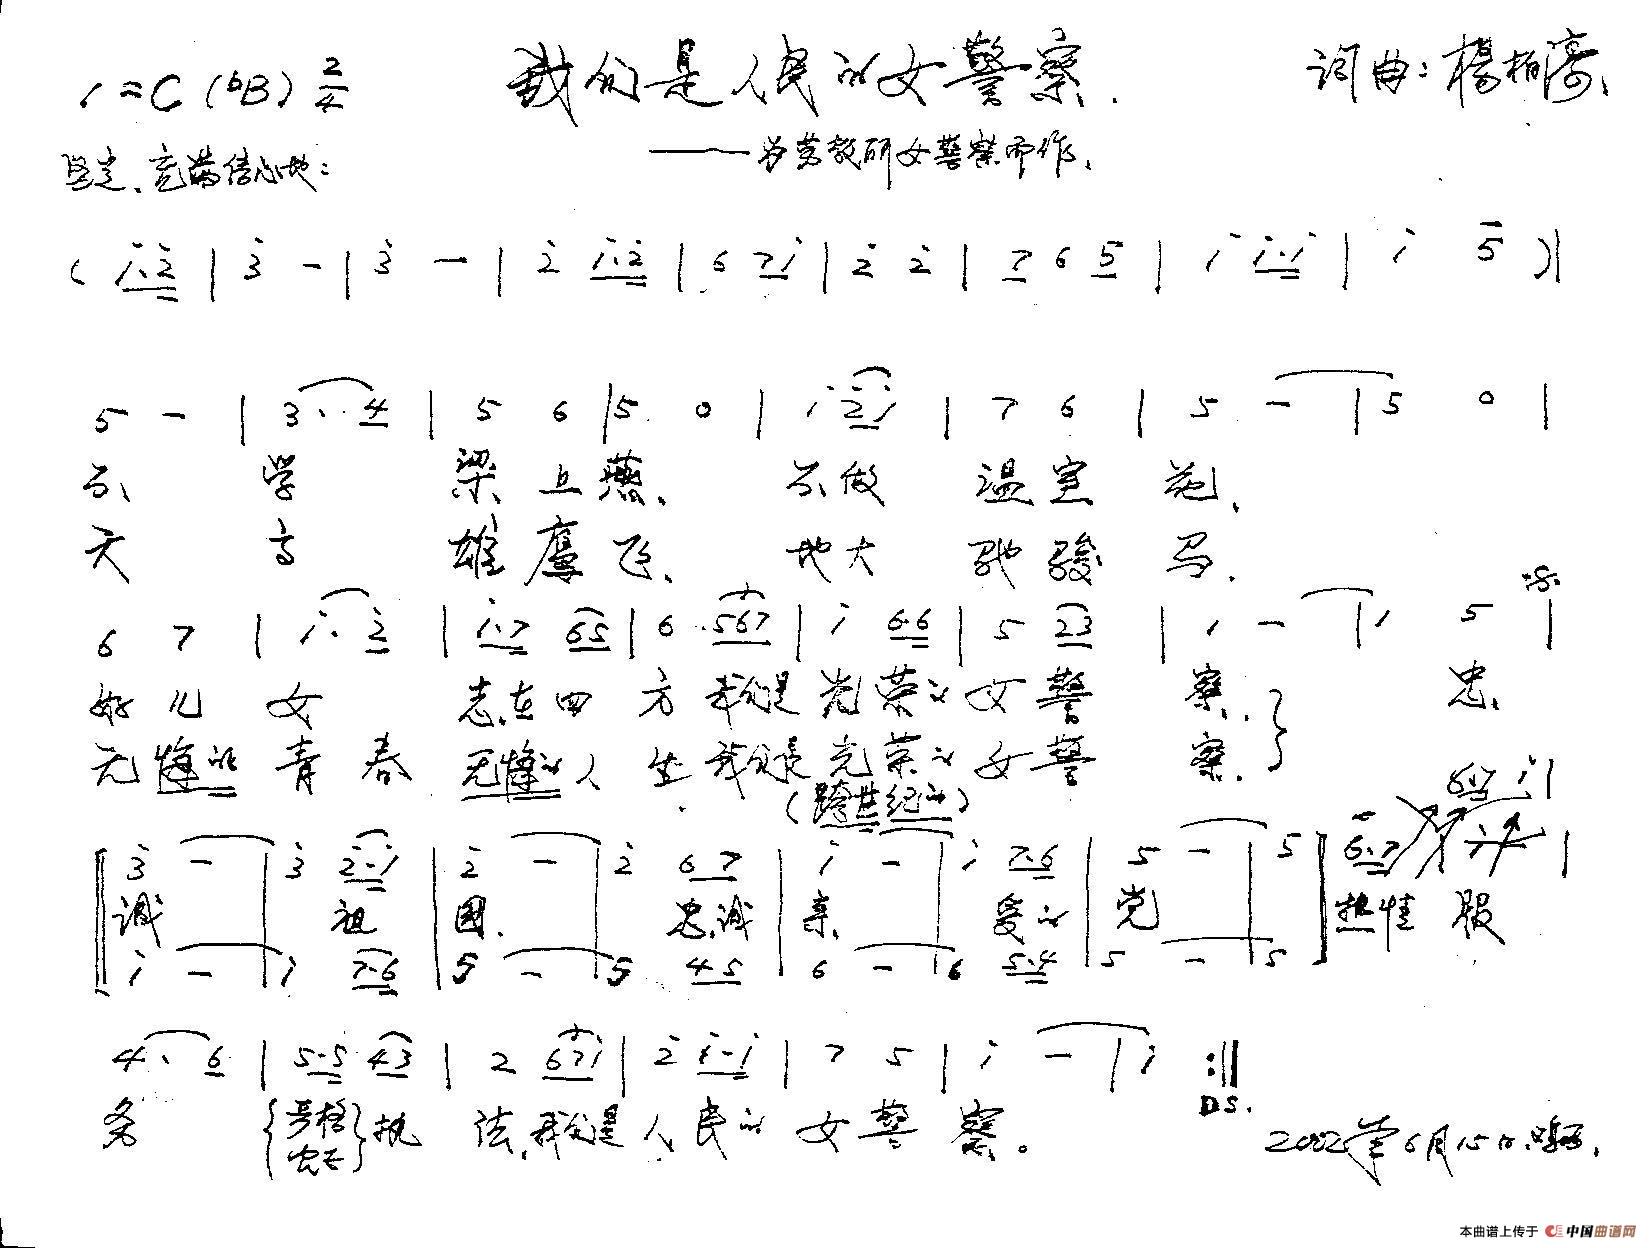 1=C (♭B) 2/4 我们是人民的女警察. 词曲:楊柏濤
——为劳教所女警察而作.
坚定、充满信心地:
( i. 2 | 3 - | 3 - | 2 i. 2 | 6 7 i | 2 2 | 7 6 5 | i i. i | i 5 ) |
5 - | 3. 4 | 5 6 | 5 0 | i 2 i | 7 6 | 5 - | 5 0 |
不 学 梁上燕、 不做 温室 花、
天 高 雄鹰飞、 地大 驰骏 马.
6 7 | i. 2 | i. 7 6 5 | 6 5 6 7 | i 6. 6 | 5 2 3 | 1 - | 1 5 |
好儿女 志在四方 我们是光荣的女警 察. } 忠、
无悔的青春 无悔的人生 我们是光荣的女警 察. }
(跨世纪的)
3 - | 3 2. i | 2 - | 2 6 7 | i - | i 7. 6 | 5 - | 5 6. 7
诚 祖 國. 忠诚 亲、 爱的 党 热情 服
i - | i 7. 6 | 5 - | 5 4 5 | 6 - | 6 5. 4 | 5 - | 5
4. 6 | 5. 5 4 3 | 2 6 7 i | 2 i. i | 7 5 | i - | i :‖
D.S.
务 { 严格 } 执 法,我们是人民的 女警 察。
2002年6月15日
本曲谱上传于 中国曲谱网